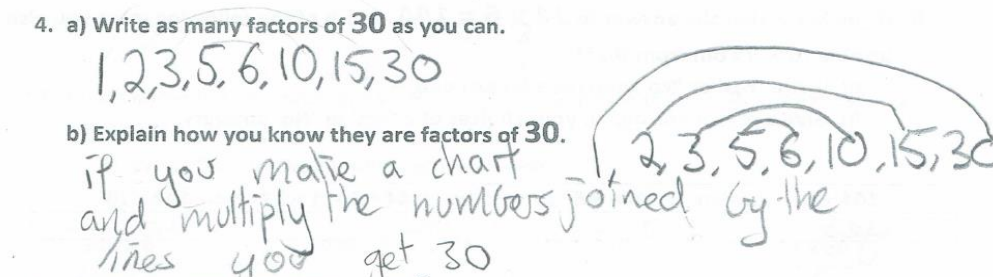 4. a) Write as many factors of 30 as you can.
1,2,3,5,6,10,15,30
b) Explain how you know they are factors of 30.
1,2,3,5,6,10,15,30
if you make a chart
and multiply the numbers joined by the
lines you get 30